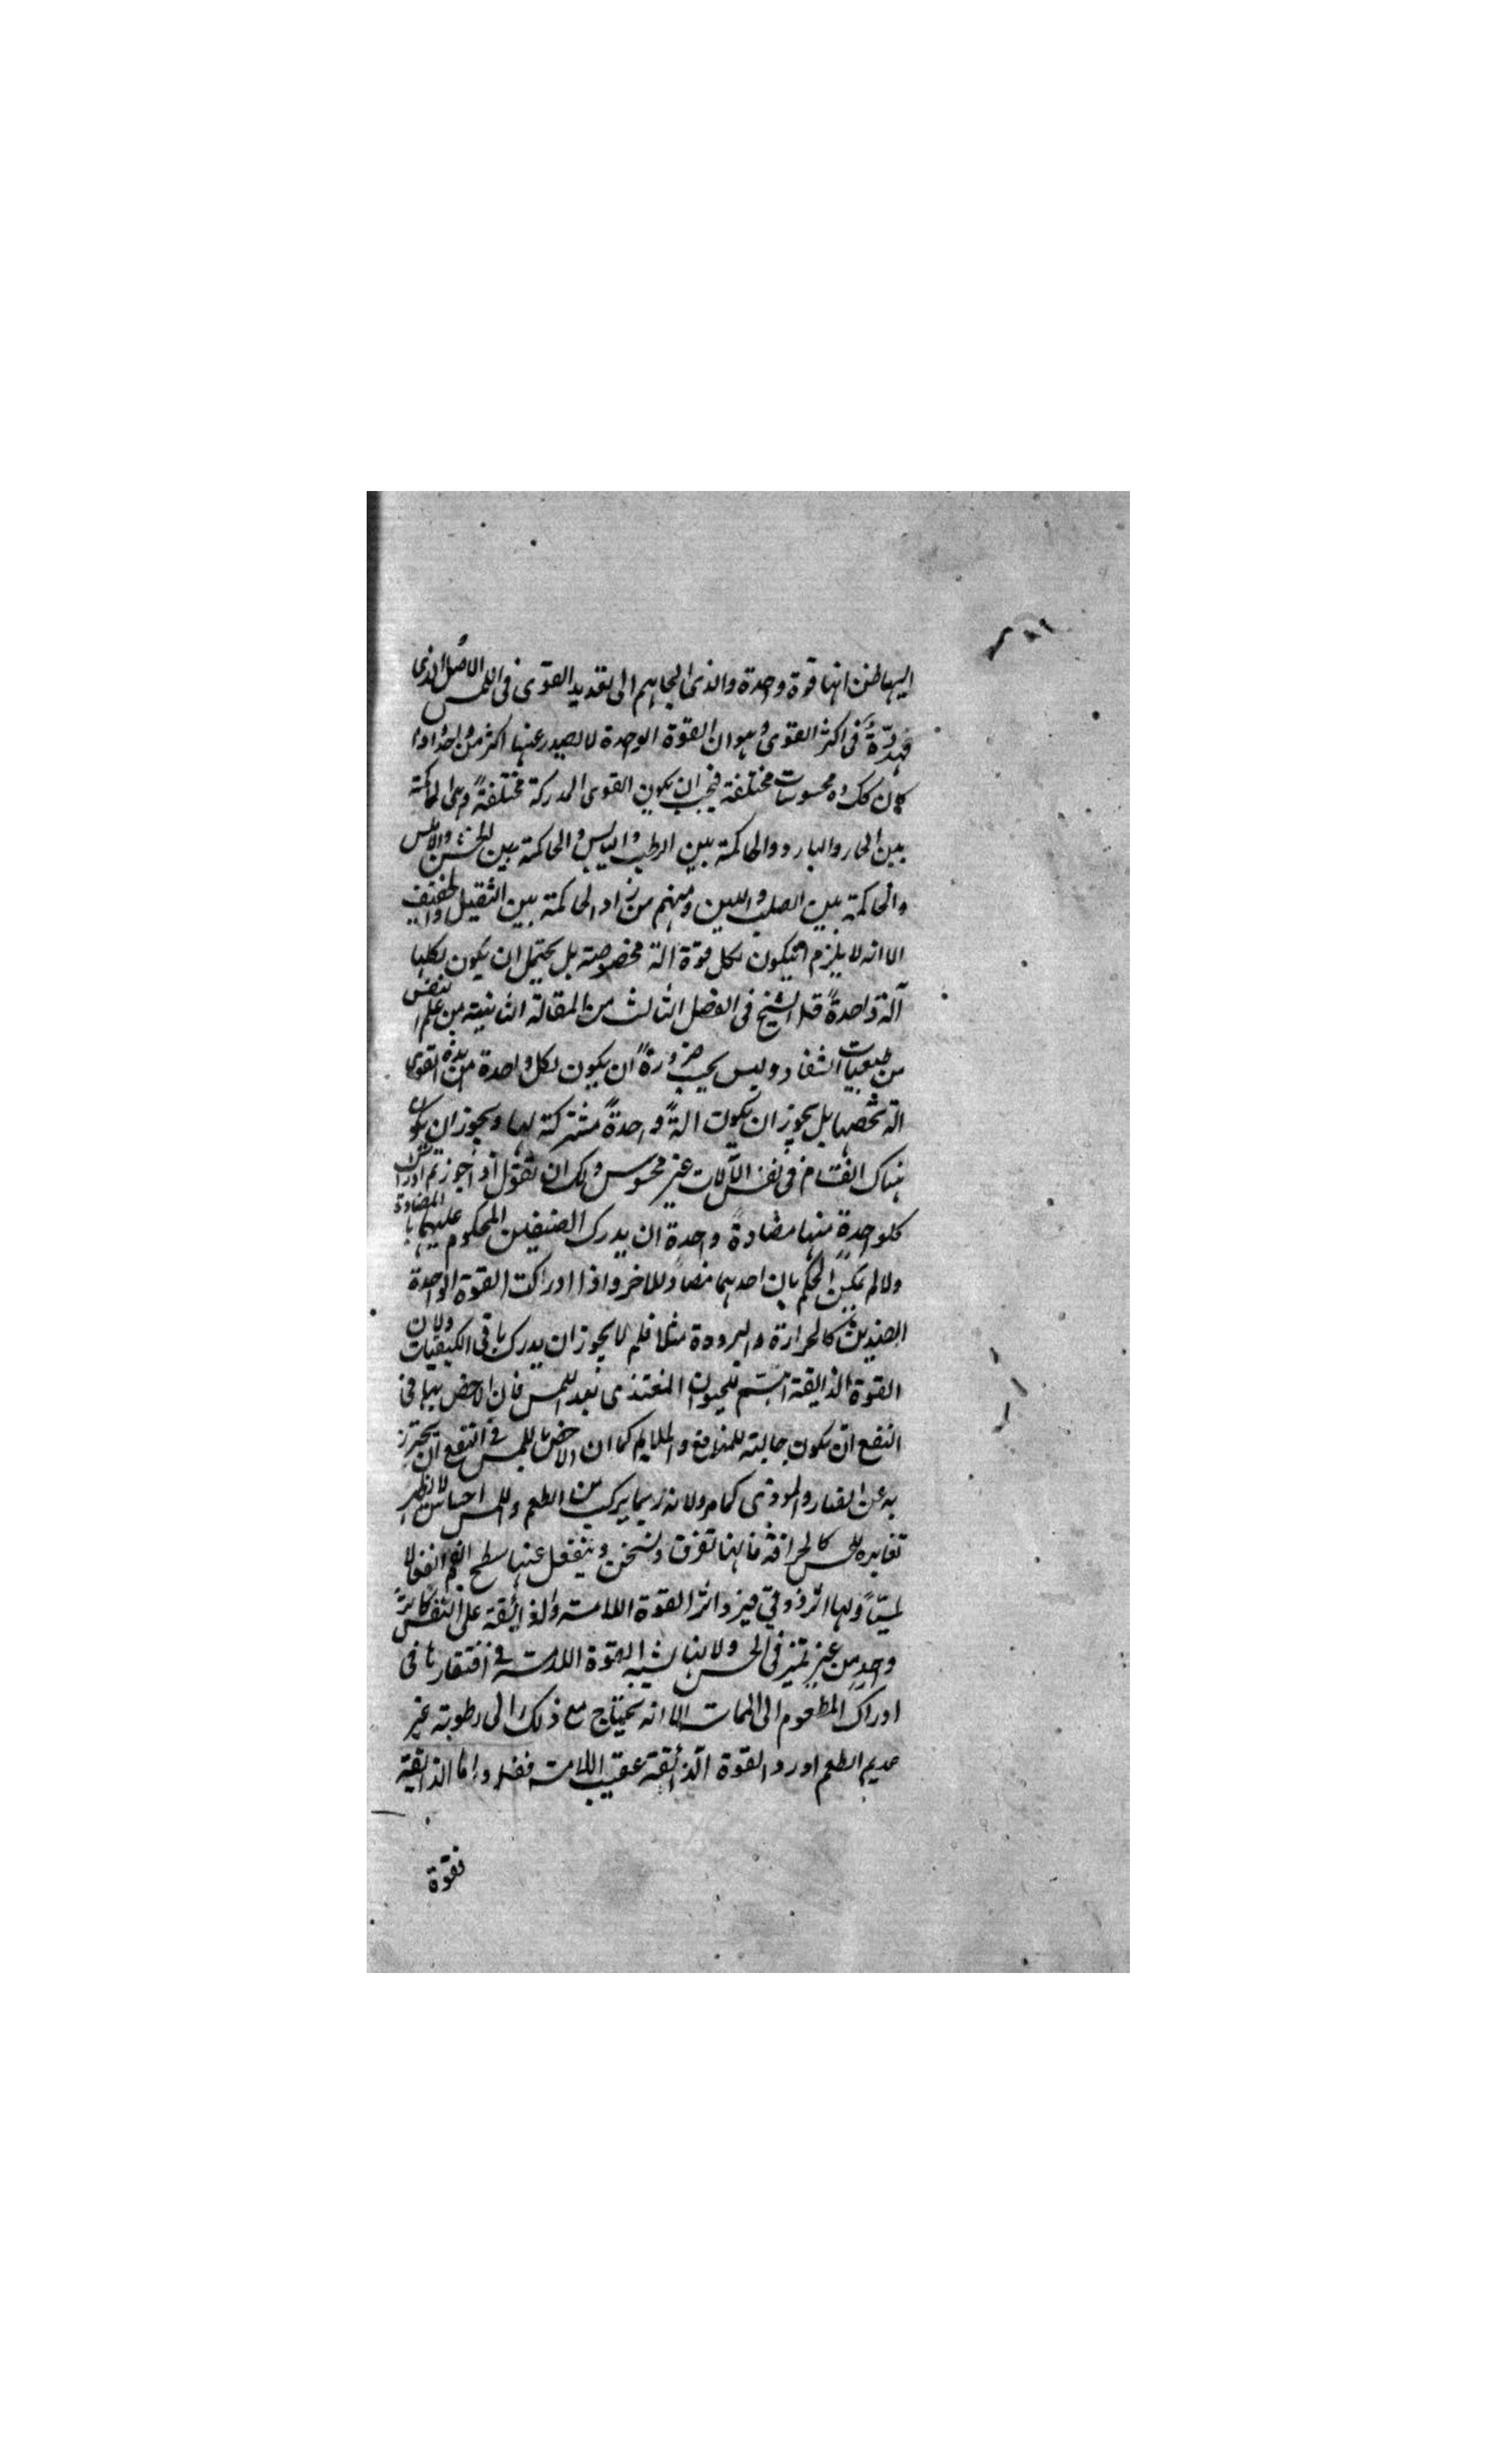 اليها ظن انها قوة واحدة والذى الجاهم الى تعديد القوى فى اللمس الاصل الذى
مهدوه فى اكثر القوى وهو ان القوة الوحدة لا يصدر عنها اكثر من واحد واذا
كان كك وه محسوسات مختلفة فيجب ان يكون القوى المدركة مختلفة وهى الحاكمة
بين الحار والبارد والحاكمة بين الرطب واليابس والحاكمة بين الخشن والاملس
والحاكمة بين الصلب واللين ومنهم من زاد الحاكمة بين الثقيل والخفيف
الا انه لا يلزم ان يكون لكل قوة الة مخصوصة بل يحتمل ان يكون لكلها
آلة واحدة قال الشيخ فى الفصل الثالث من المقالة الثانية من علم النفس
من طبعيات الشفاء وليس يجب ضرورة ان يكون لكل واحدة من هذه القوى
الة تخصها بل يجوز ان يكون الة واحدة مشتركة لها ويجوز ان يكون
هناك انقسام فى نفس الآلات غير محسوس ولك ان تقول اذا جوزتم ادراك
كل واحدة منها مضادة واحدة ان يدرك الضدين المحكوم عليهما بالمضادة
ولا لم يكن الحكم بان احدهما مضاد للاخر واذا ادركت القوة الواحدة
الضدين كالحرارة والبرودة مثلا فلم لا يجوز ان يدرك باقى الكيفيات ولان
القوة الذايقة اهم للحيوان المغتذى بعد اللمس فان الاخص بها فى
النفع ان يكون جالبة للمنافع والملايم كما ان الاخص باللمس فى النفع ان يحترز
به عن الضار والموذى كما مر ولانه ربما يتركب من الطعم واللمس احساس لا نظير
تغايره للحس كالحرافة فانها تفرق وتسخن وينفعل عنها سطح الفم انفعالا
لمسيا ولها اثر ذوقى فيرد اثر القوة اللامسة والذايقة على النفس كاثر
واحد من غير تميز فى الحس ولانها يشبه القوة اللامسة فى افتقارها فى
ادراك المطعوم الى المماسة الا انه يحتاج مع ذلك الى رطوبة غير
عديم الطعم اورد القوة الذائقة عقيب اللامسة فقال واما الذائقة
فقوة